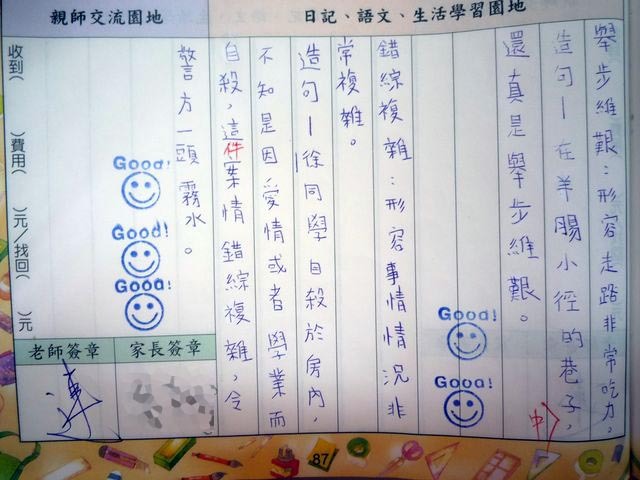 日記、語文、生活學習園地
舉步維艱:形容走路非常吃力。
造句—在羊腸小徑的巷子,
中
還真是舉步維艱。
Good!
Good!
錯綜複雜:形容事情情況非
常複雜。
造句—徐同學自殺於房內,
不知是因愛情或者學業而
自殺,這件案情錯綜複雜,令
警方一頭霧水。
親師交流園地
Good!
Good!
Good!
收到( )費用( )元/找回( )元
家長簽章
老師簽章
87